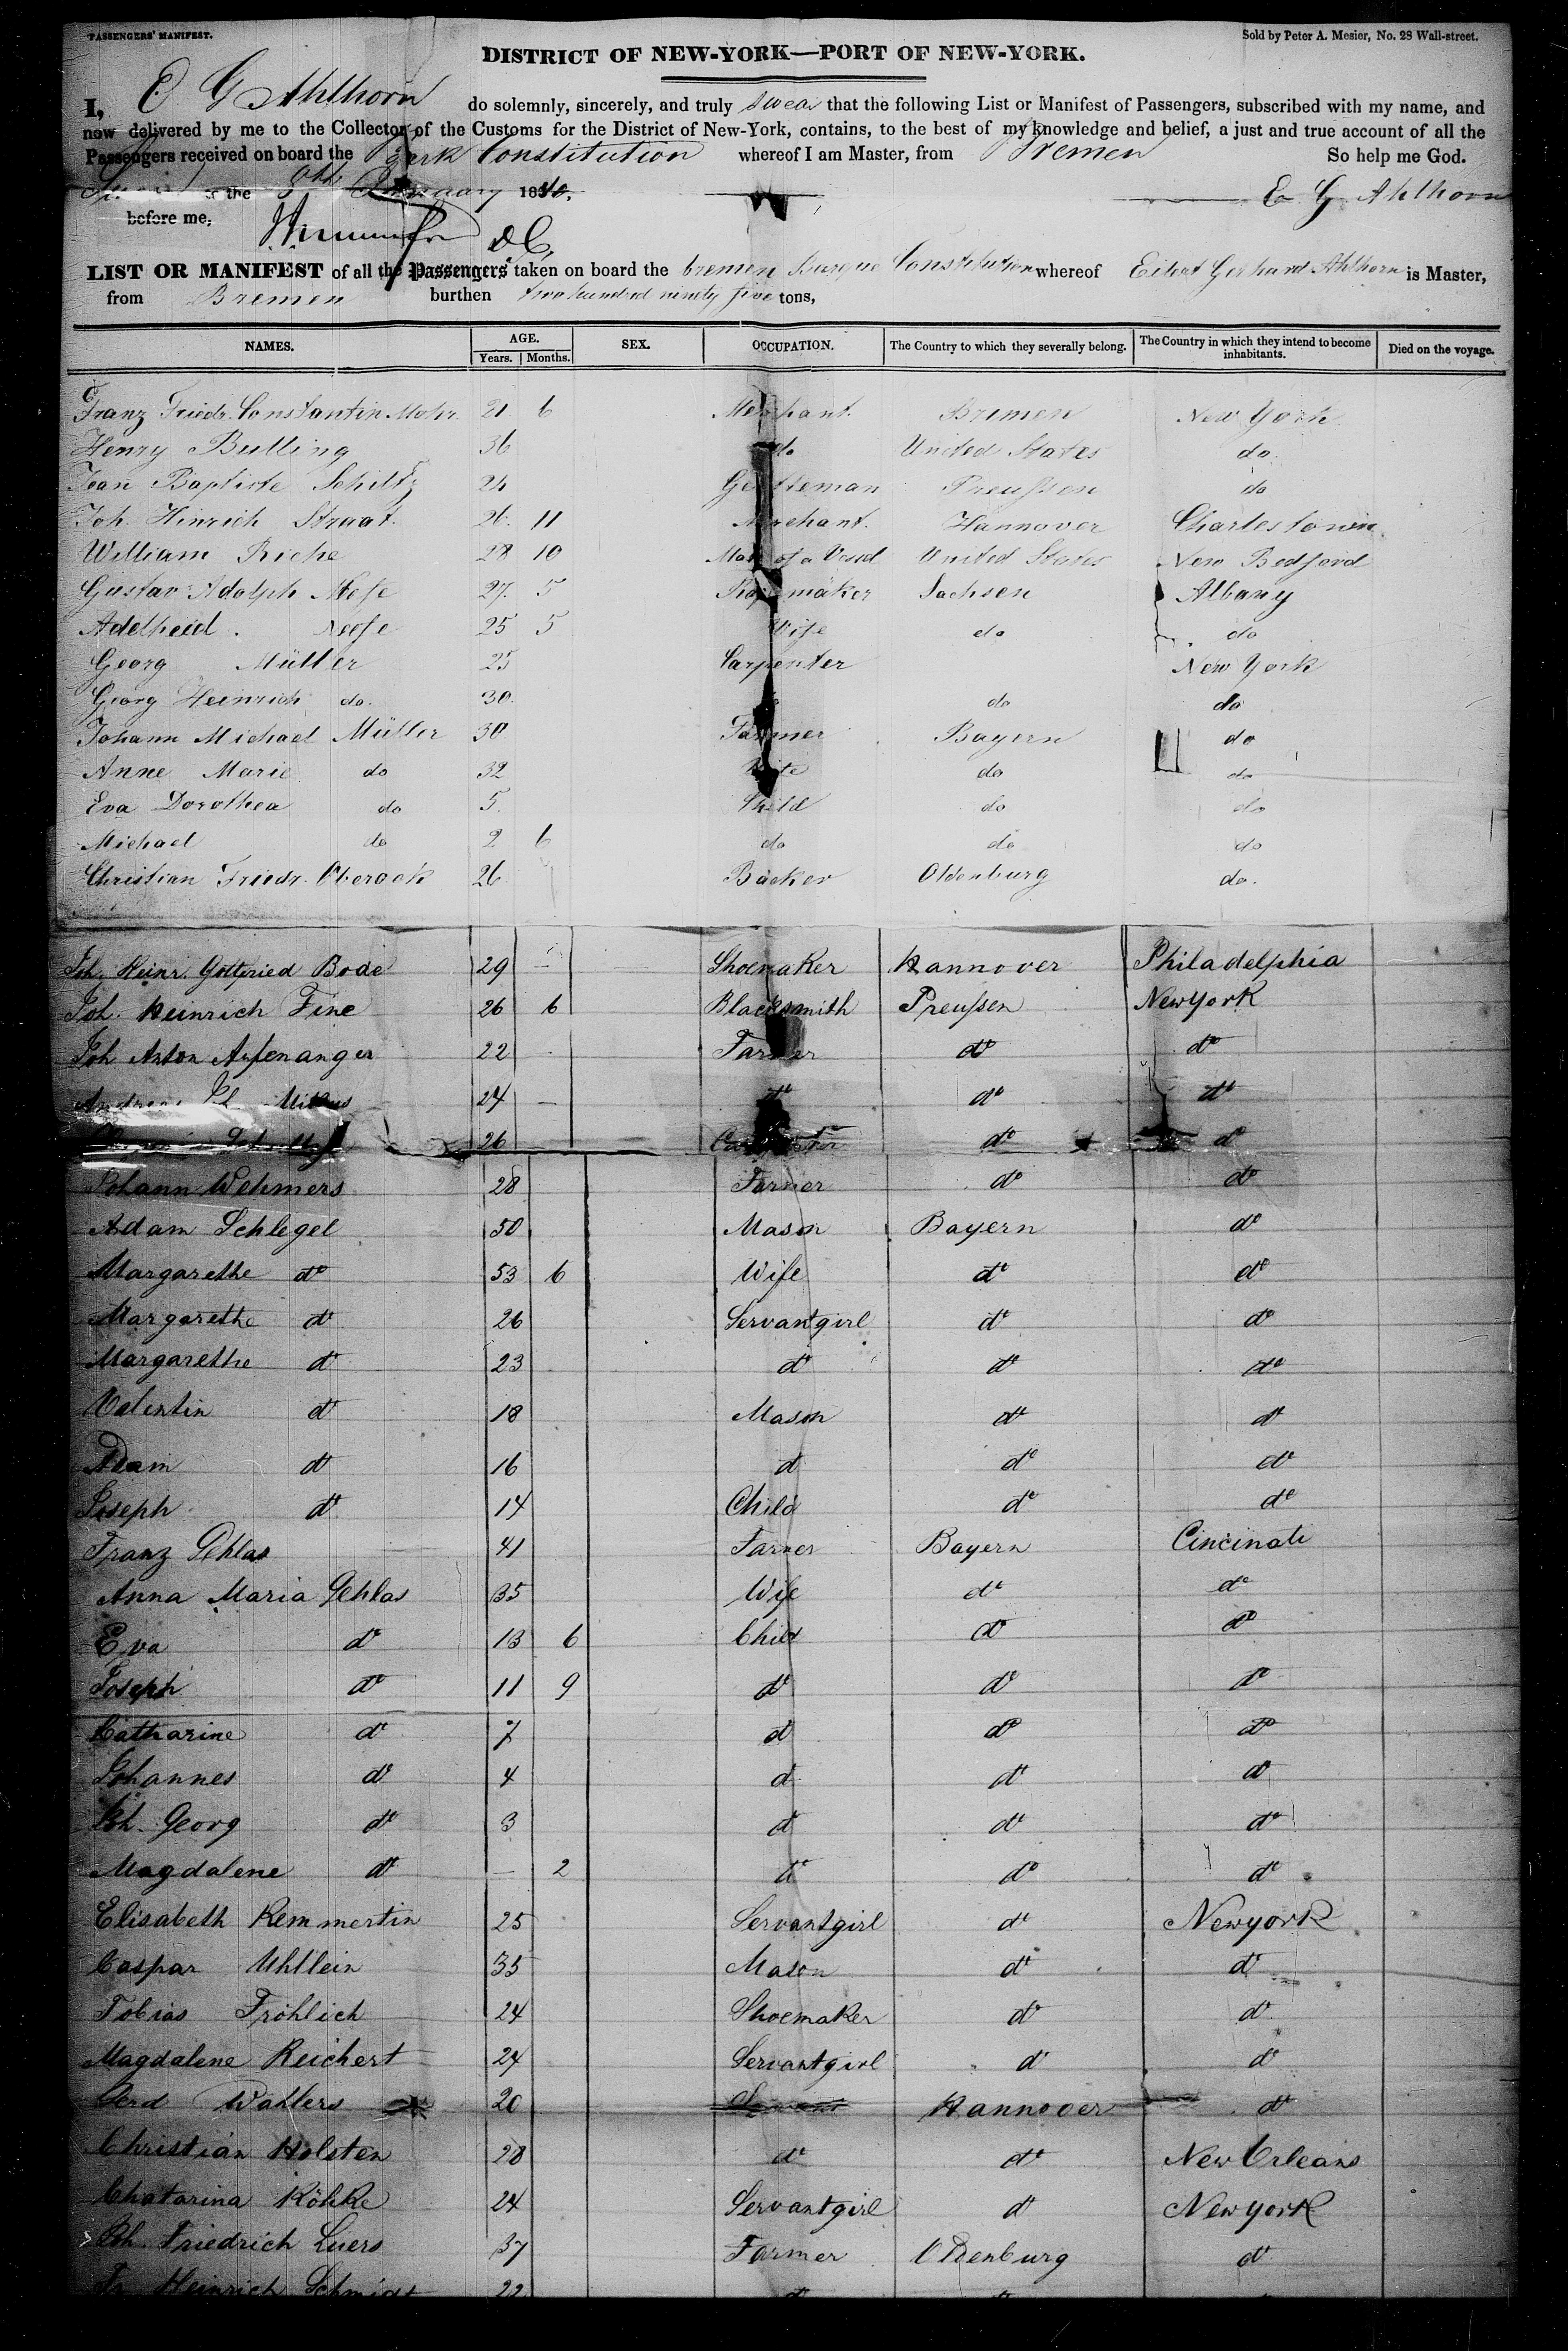 PASSENGERS' MANIFEST.
Sold by Peter A. Mesier, No. 28 Wall-street.
DISTRICT OF NEW-YORK—PORT OF NEW-YORK.
I, E G Ahlhorn do solemnly, sincerely, and truly swear that the following List or Manifest of Passengers, subscribed with my name, and
now delivered by me to the Collector of the Customs for the District of New-York, contains, to the best of my knowledge and belief, a just and true account of all the
Passengers received on board the Bark Constitution whereof I am Master, from Bremen So help me God.
the 9th January 1840. E G Ahlhorn
before me,
LIST OR MANIFEST of all the Passengers taken on board the bremen Barque Constitution whereof Gerhard Ahlhorn is Master,
from Bremen burthen two hundred ninety five tons,
NAMES. AGE. Years. Months. SEX. OCCUPATION. The Country to which they severally belong. The Country in which they intend to become inhabitants. Died on the voyage.
Franz Friedr. Constantin Mohr. 21 6 Merchant. Bremen New York
Henry Bulling 36 do United States do.
Jean Baptiste Schiltz 24 Gentleman Preußen do
Joh. Hinrich Straat. 26. 11 Merchant. Hannover Charlestown
William Riche 28 10 of a Vessel United States New Bedford
Gustav Adolph Neefe 27. 5 Sachsen Albany
Adelheid. Neefe 25 5 Wife do do
Georg Müller 25 Carpenter New York
Georg Heinrich do. 30. do do
Johann Michael Müller 30 Farmer Bayern do
Anne Marie do 32 Wife do do
Eva Dorothea do 5. Child do do
Michael do 2 6 do do do
Christian Friedr. Oberook 26. Backer Oldenburg do.
Joh. Heinr. Gottfried Bode 29 — Shoemaker Hannover Philadelphia
Joh. Heinrich Fine 26 6 Blacksmith Preußen New York
Joh Anton 22 Farmer do do
Andreas 24 — do do do
26 do do
Johann Wehmers 28 Farmer do do
Adam Schlegel 50 Mason Bayern do
Margarethe do 53 6 Wife do do
Margarethe do 26 Servantgirl do do
Margarethe do 23 do do do
Valentin do 18 Mason do do
Adam do 16 do do do
Joseph do 14 Child do do
Franz Gehlas 41 Farmer Bayern Cincinati
Anna Maria Gehlas 35 Wife do do
Eva do 13 6 Child do do
Joseph do 11 9 do do do
Catharine do 7 do do do
Johannes do 4 do do do
Joh. Georg do 3 do do do
Magdalene do — 2 do do do
Elisabeth Remmertin 25 Servantgirl do Newyork
Caspar Uhllein 35 Mason do do
Tobias Fröhlich 24 Shoemaker do do
Magdalene Reichert 24 Servantgirl do do
Gerd Wahlers 20 Hannover do
Christian Holsten 28 do do New Orleans
Chatarina Röhke 24 Servantgirl do New york
Joh. Friedrich Luers 37 Farmer Oldenburg do
Fr. Heinrich Schmidt 22 do